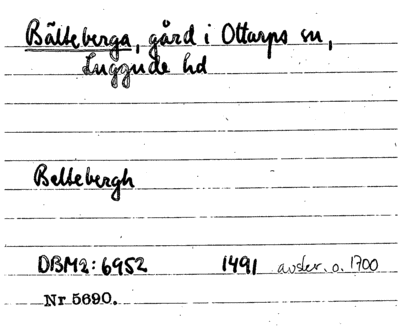 Bälteberga, gård i Ottarps sn,
Luggude hd
Beltebergh
DBM2:6952 1491 avskr. o. 1700
Nr 5690.